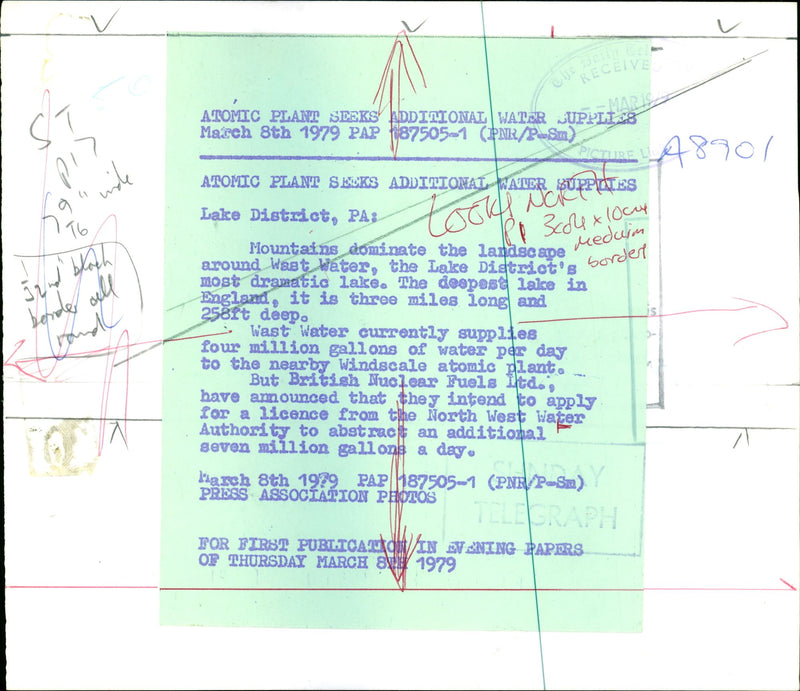 The Daily
RECEIVED
MAR 19
PICTURE LI
A8901
ST
P17
9" wide
T6
black
border all
round
ATOMIC PLANT SEEKS ADDITIONAL WATER SUPPLIES
March 8th 1979 PAP 187505-1 (PNR/P-Sm)
ATOMIC PLANT SEEKS ADDITIONAL WATER SUPPLIES
LOOK NORTH
P1 3cols x 10cm
medium
border
Lake District, PA:
Mountains dominate the landscape
around Wast Water, the Lake District's
most dramatic lake. The deepest lake in
England, it is three miles long and
258ft deep.
Wast Water currently supplies
four million gallons of water per day
to the nearby Windscale atomic plant.
But British Nuclear Fuels Ltd.,
have announced that they intend to apply
for a licence from the North West Water
Authority to abstract an additional
seven million gallons a day.
March 8th 1979 PAP 187505-1 (PNR/P-Sm)
PRESS ASSOCIATION PHOTOS
SUNDAY
TELEGRAPH
FOR FIRST PUBLICATION IN EVENING PAPERS
OF THURSDAY MARCH 8TH 1979